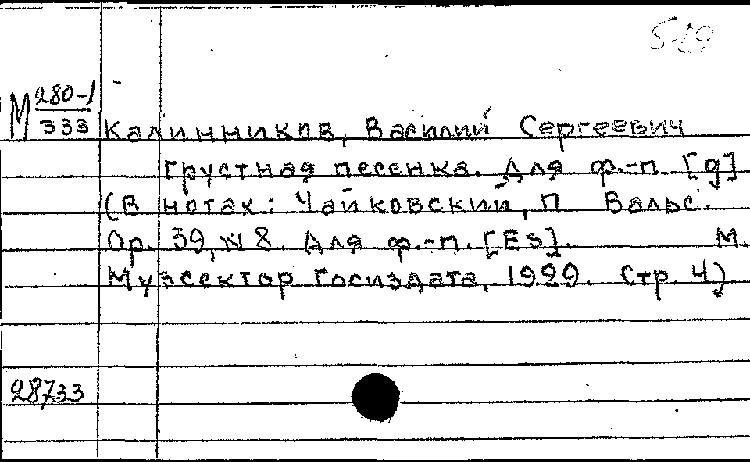 5-29
М 280-1
333 Калинников, Василий Сергеевич
Грустная песенка. Для ф.-п. [g]
(В нотах: Чайковский, П Вальс.
Op. 39, № 8. Для ф.-п. [Es]. М.
Музсектор Госиздата, 1929. Стр. 4)
28733